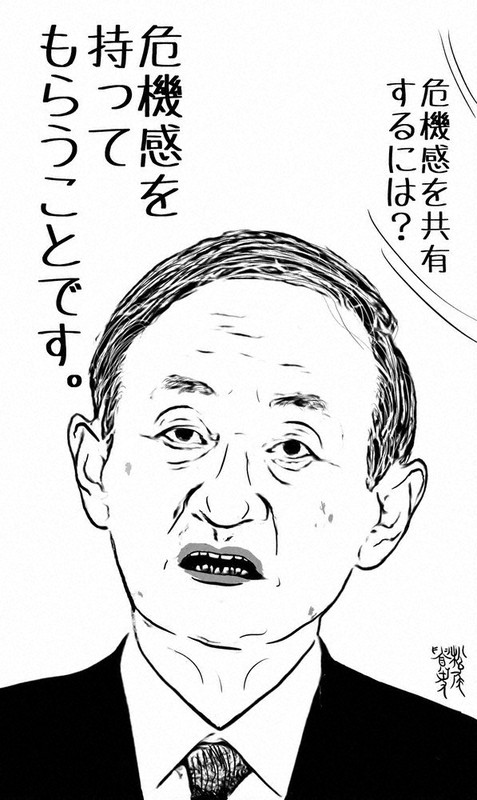 危機感を共有
するには？
危機感を
持って
もらうことです。